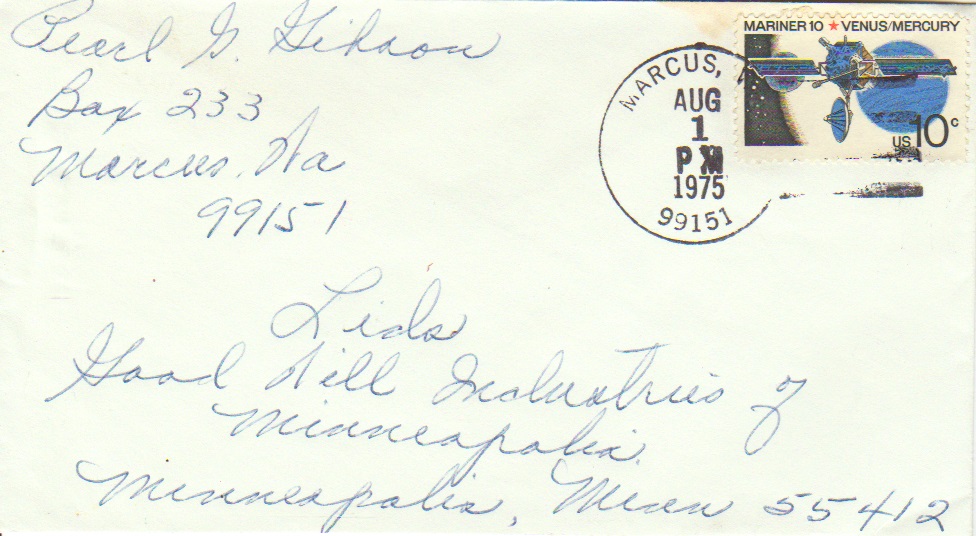 Pearl G. Gibson
Box 233
Marcus, Wa
99151
MARINER 10 ★ VENUS/MERCURY
US 10c
MARCUS,
AUG
1
PM
1975
99151
Lids
Good Will Industries of
Minneapolis
Minneapolis, Minn 55412